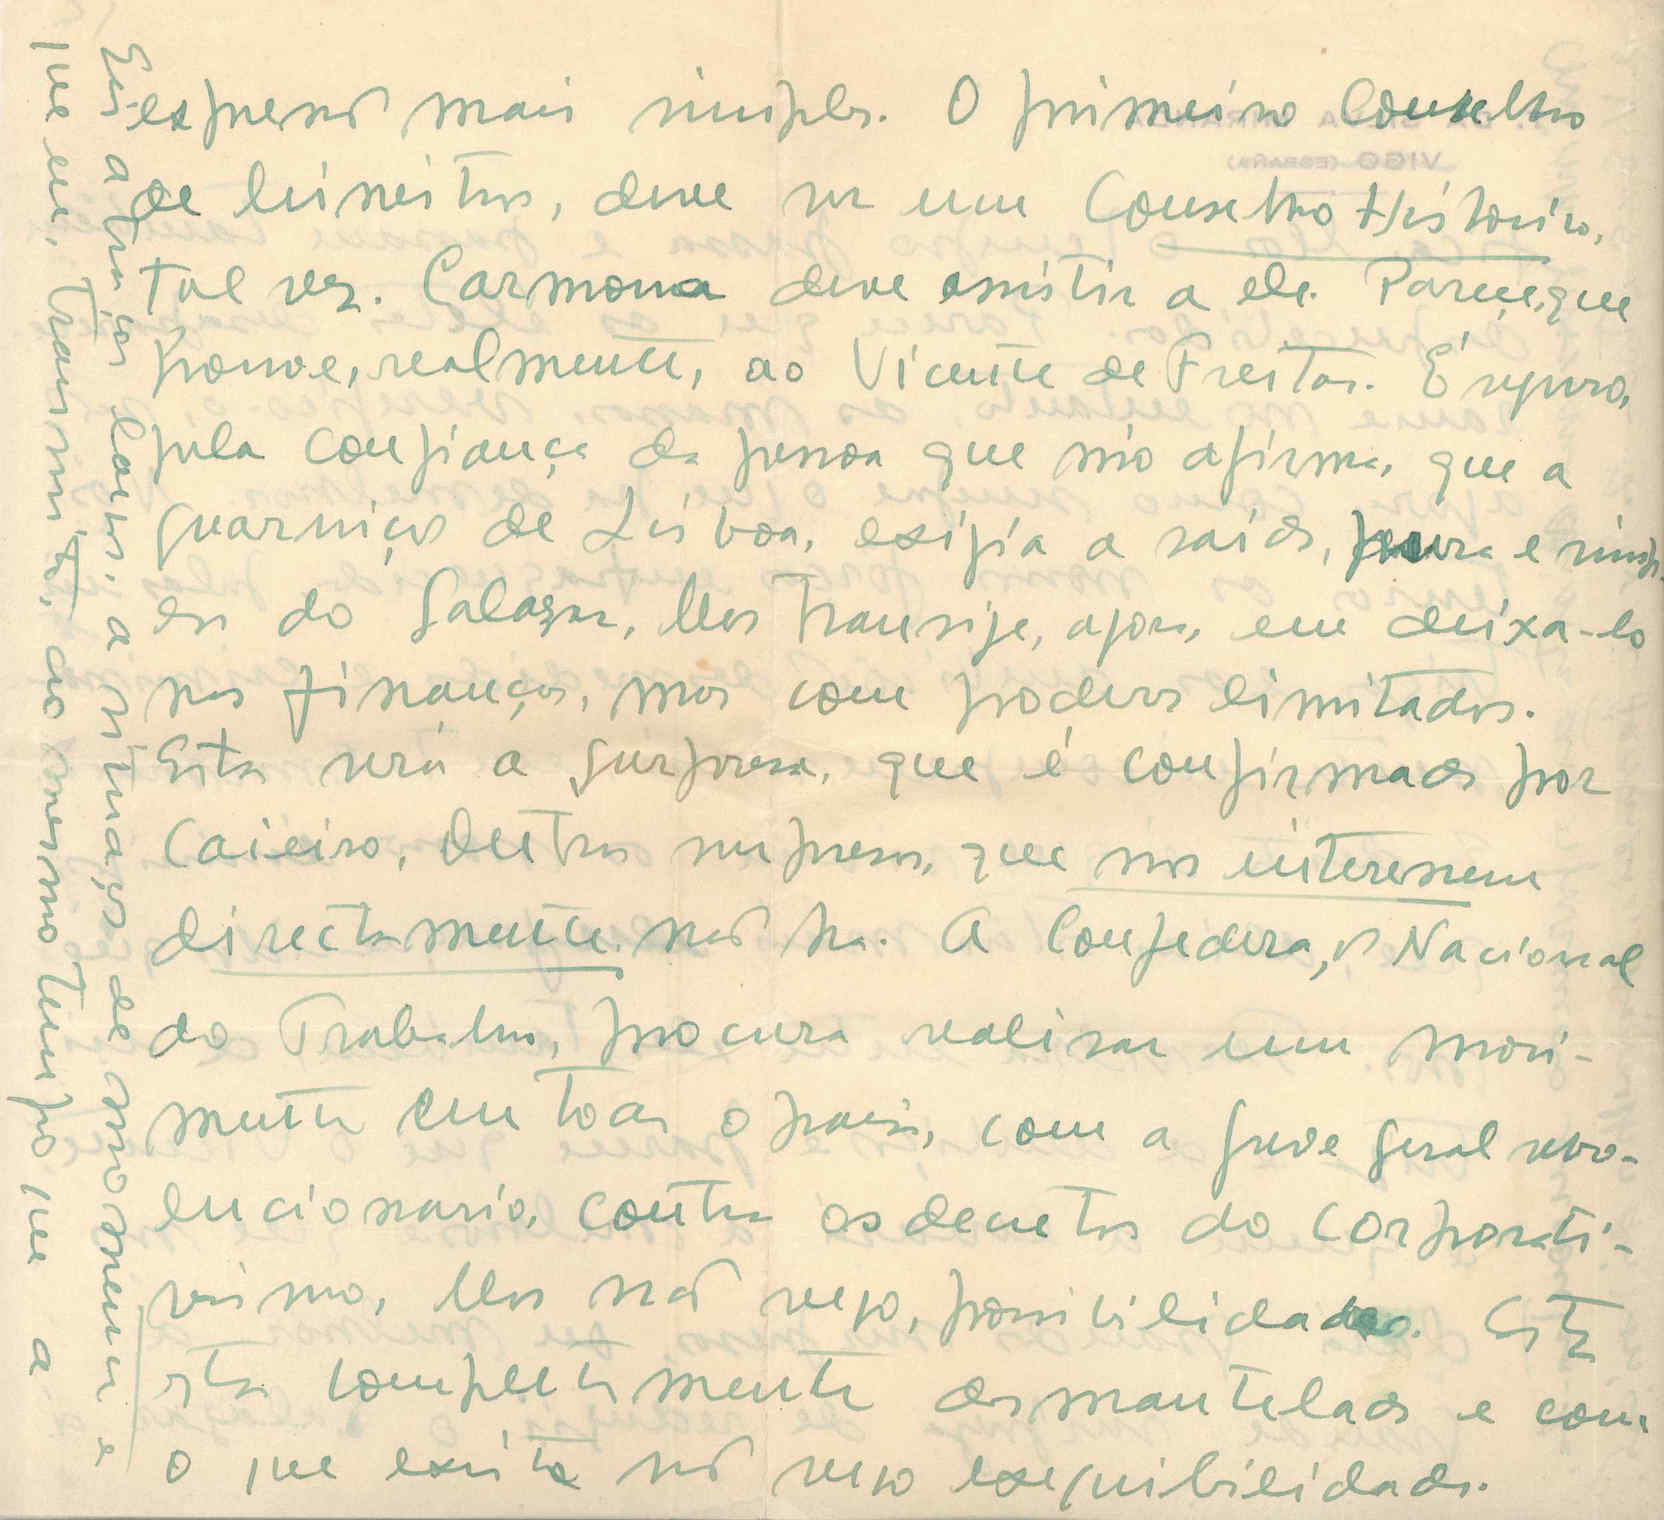 expresso mais simples. O primeiro Conselho
de Ministros, deve ser um Conselho Historico,
tal vez. Carmona deve assistir a ele. Parece, que
promove, realmente, ao Vicente de Freitas. É seguro,
pela confiança da pessoa que mo afirma, que a
guarnição de Lisboa, exigia a saida, pura e simpl-
es do Salazar, Mas transige, agora, em deixa-lo
nas finanças, mas com poderes limitados.
Esta será a surpresa, que é confirmada por
Caieiro, Outras surpresas, que nos interessem
directamente não ha. A Confederação Nacional
do Trabalho, procura realisar um movi-
mento em todo o pais, com a greve geral revo-
lucionario, contra os decretos do corporati-
vismo, Mas não vejo, possibilidades. Esta
completamente desmantelado e com
o que existe não vejo exequibilidade.
Eis a traços largos, a situação de momento e
que eu, transmito, ao mesmo tempo que a